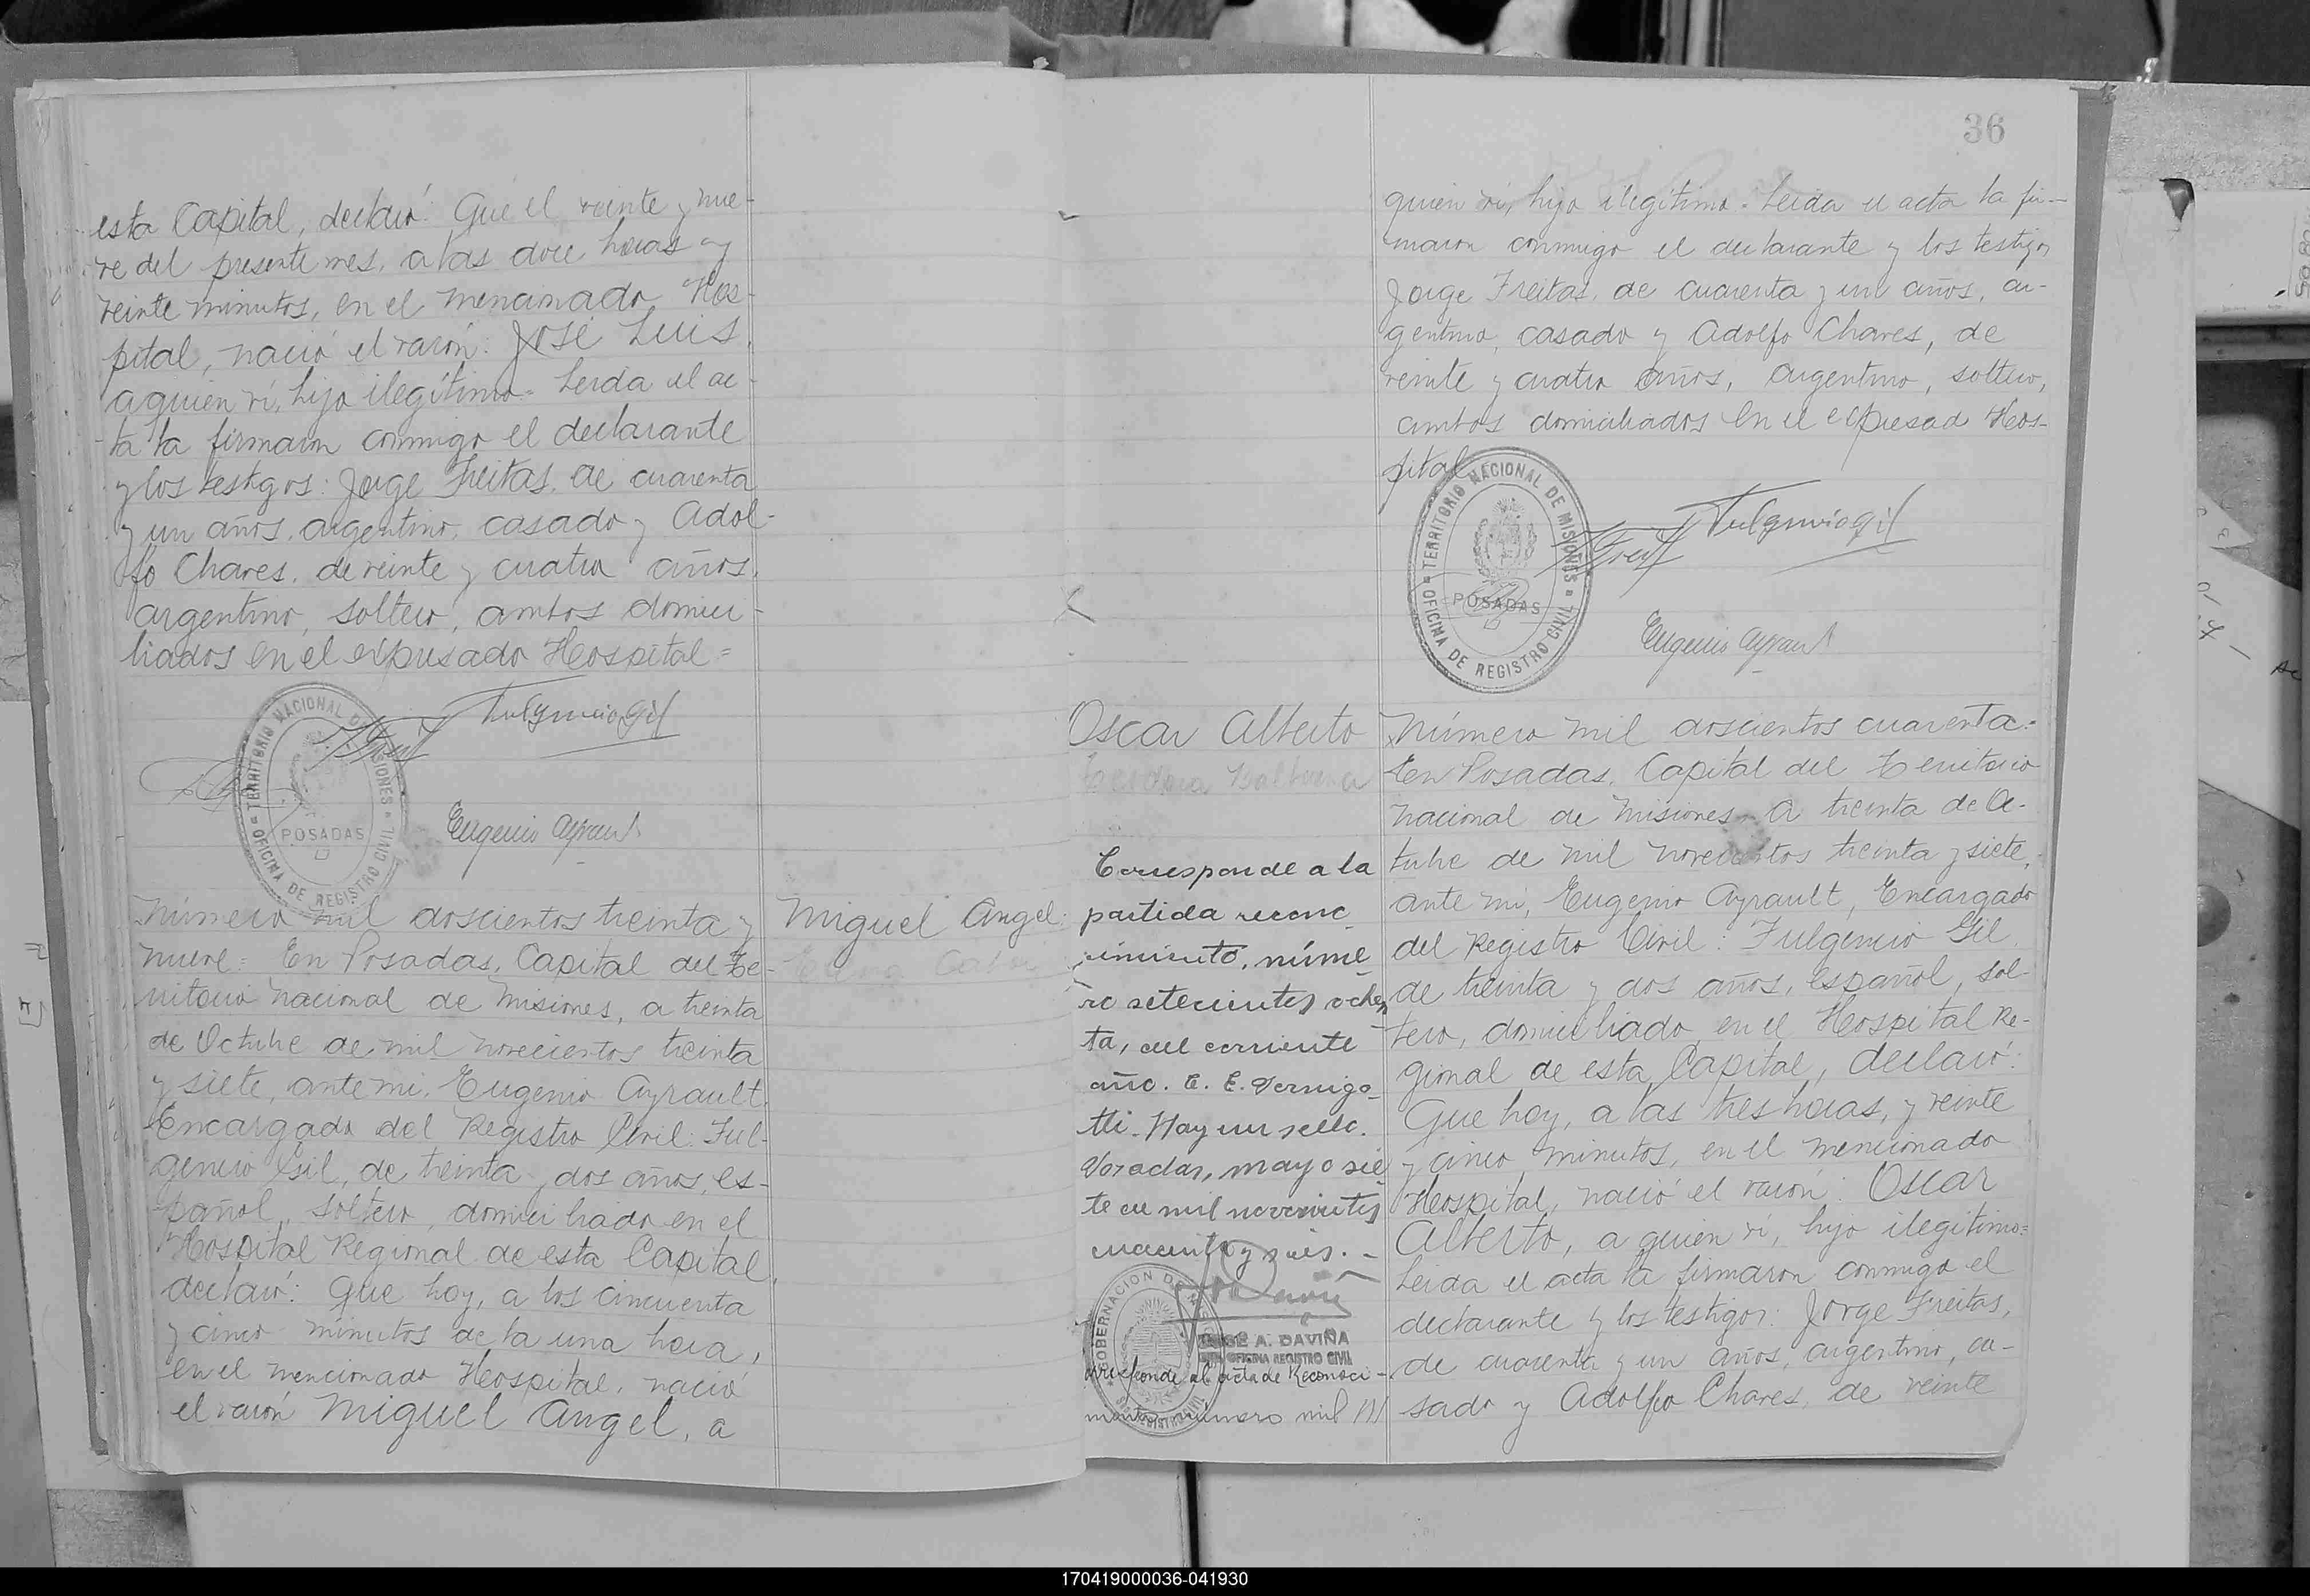 esta Capital, declaró: Que el veinte y nue-
ve del presente mes, a las doce horas y
veinte minutos, en el mencionado Hos-
pital, nació el varón: José Luis,
a quien ví, hijo ilegítimo = Leida el ac-
ta la firmaron conmigo el declarante
y los testigos: Jorge Freitas, de cuarenta
y un años, argentino, casado y Adol-
fo Chaves, de veinte y cuatro años,
argentino, soltero, ambos domici-
liados en el expresado Hospital =
TERRITORIO NACIONAL DE MISIONES
OFICINA DE REGISTRO CIVIL
POSADAS
Fulgencio Gil
Eugenio Ayrault
Número mil doscientos treinta y
nueve = En Posadas, Capital del Te-
rritorio Nacional de Misiones, a treinta
de Octubre de mil novecientos treinta
y siete, ante mi, Eugenio Ayrault,
Encargado del Registro Civil: Ful-
gencio Gil, de treinta y dos años, es-
pañol, soltero, domiciliado en el
Hospital Regional de esta Capital,
declaró: Que hoy, a los cincuenta
y cinco minutos de la una hora,
en el mencionado Hospital, nació
el varón Miguel Angel, a
Miguel Angel
36
quien ví, hijo ilegítimo = Leida el acta la fir-
maron conmigo el declarante y los testigos
Jorge Freitas, de cuarenta y un años, ar-
gentino, casado y Adolfo Chaves, de
veinte y cuatro años, argentino, soltero,
ambos domiciliados en el expresad Hos-
pital
TERRITORIO NACIONAL DE MISIONES
OFICINA DE REGISTRO CIVIL
POSADAS
Fulgencio Gil
Eugenio Ayrault
Oscar Alberto
Corresponde a la
partida reconoc
imiento, núme-
ro setecientos ochen
ta, del corriente
año. E. E. Vernigo-
tti. Hay un sello.
Posadas, mayo sie
te de mil novecientos
cuarenta y seis. -
GOBERNACION DE
JORGE A. DAVIÑA
OFICINA REGISTRO CIVIL
corresponde al acta de Reconoci-
miento número mil
Número mil doscientos cuarenta =
En Posadas, Capital del Territorio
Nacional de Misiones, a treinta de Oc-
tubre de mil novecientos treinta y siete,
ante mi, Eugenio Ayrault, Encargado
del Registro Civil: Fulgencio Gil
de treinta y dos años, español, sol-
tero, domiciliado en el Hospital Re-
gional de esta Capital, declaró:
Que hoy, a las tres horas, y veinte
y cinco minutos, en el mencionado
Hospital, nació el varón: Oscar
Alberto, a quien ví, hijo ilegítimo =
Leida el acta la firmaron conmigo el
declarante y los testigos: Jorge Freitas,
de cuarenta y un años, argentino, ca-
sado y Adolfo Chaves, de veinte
170419000036-041930